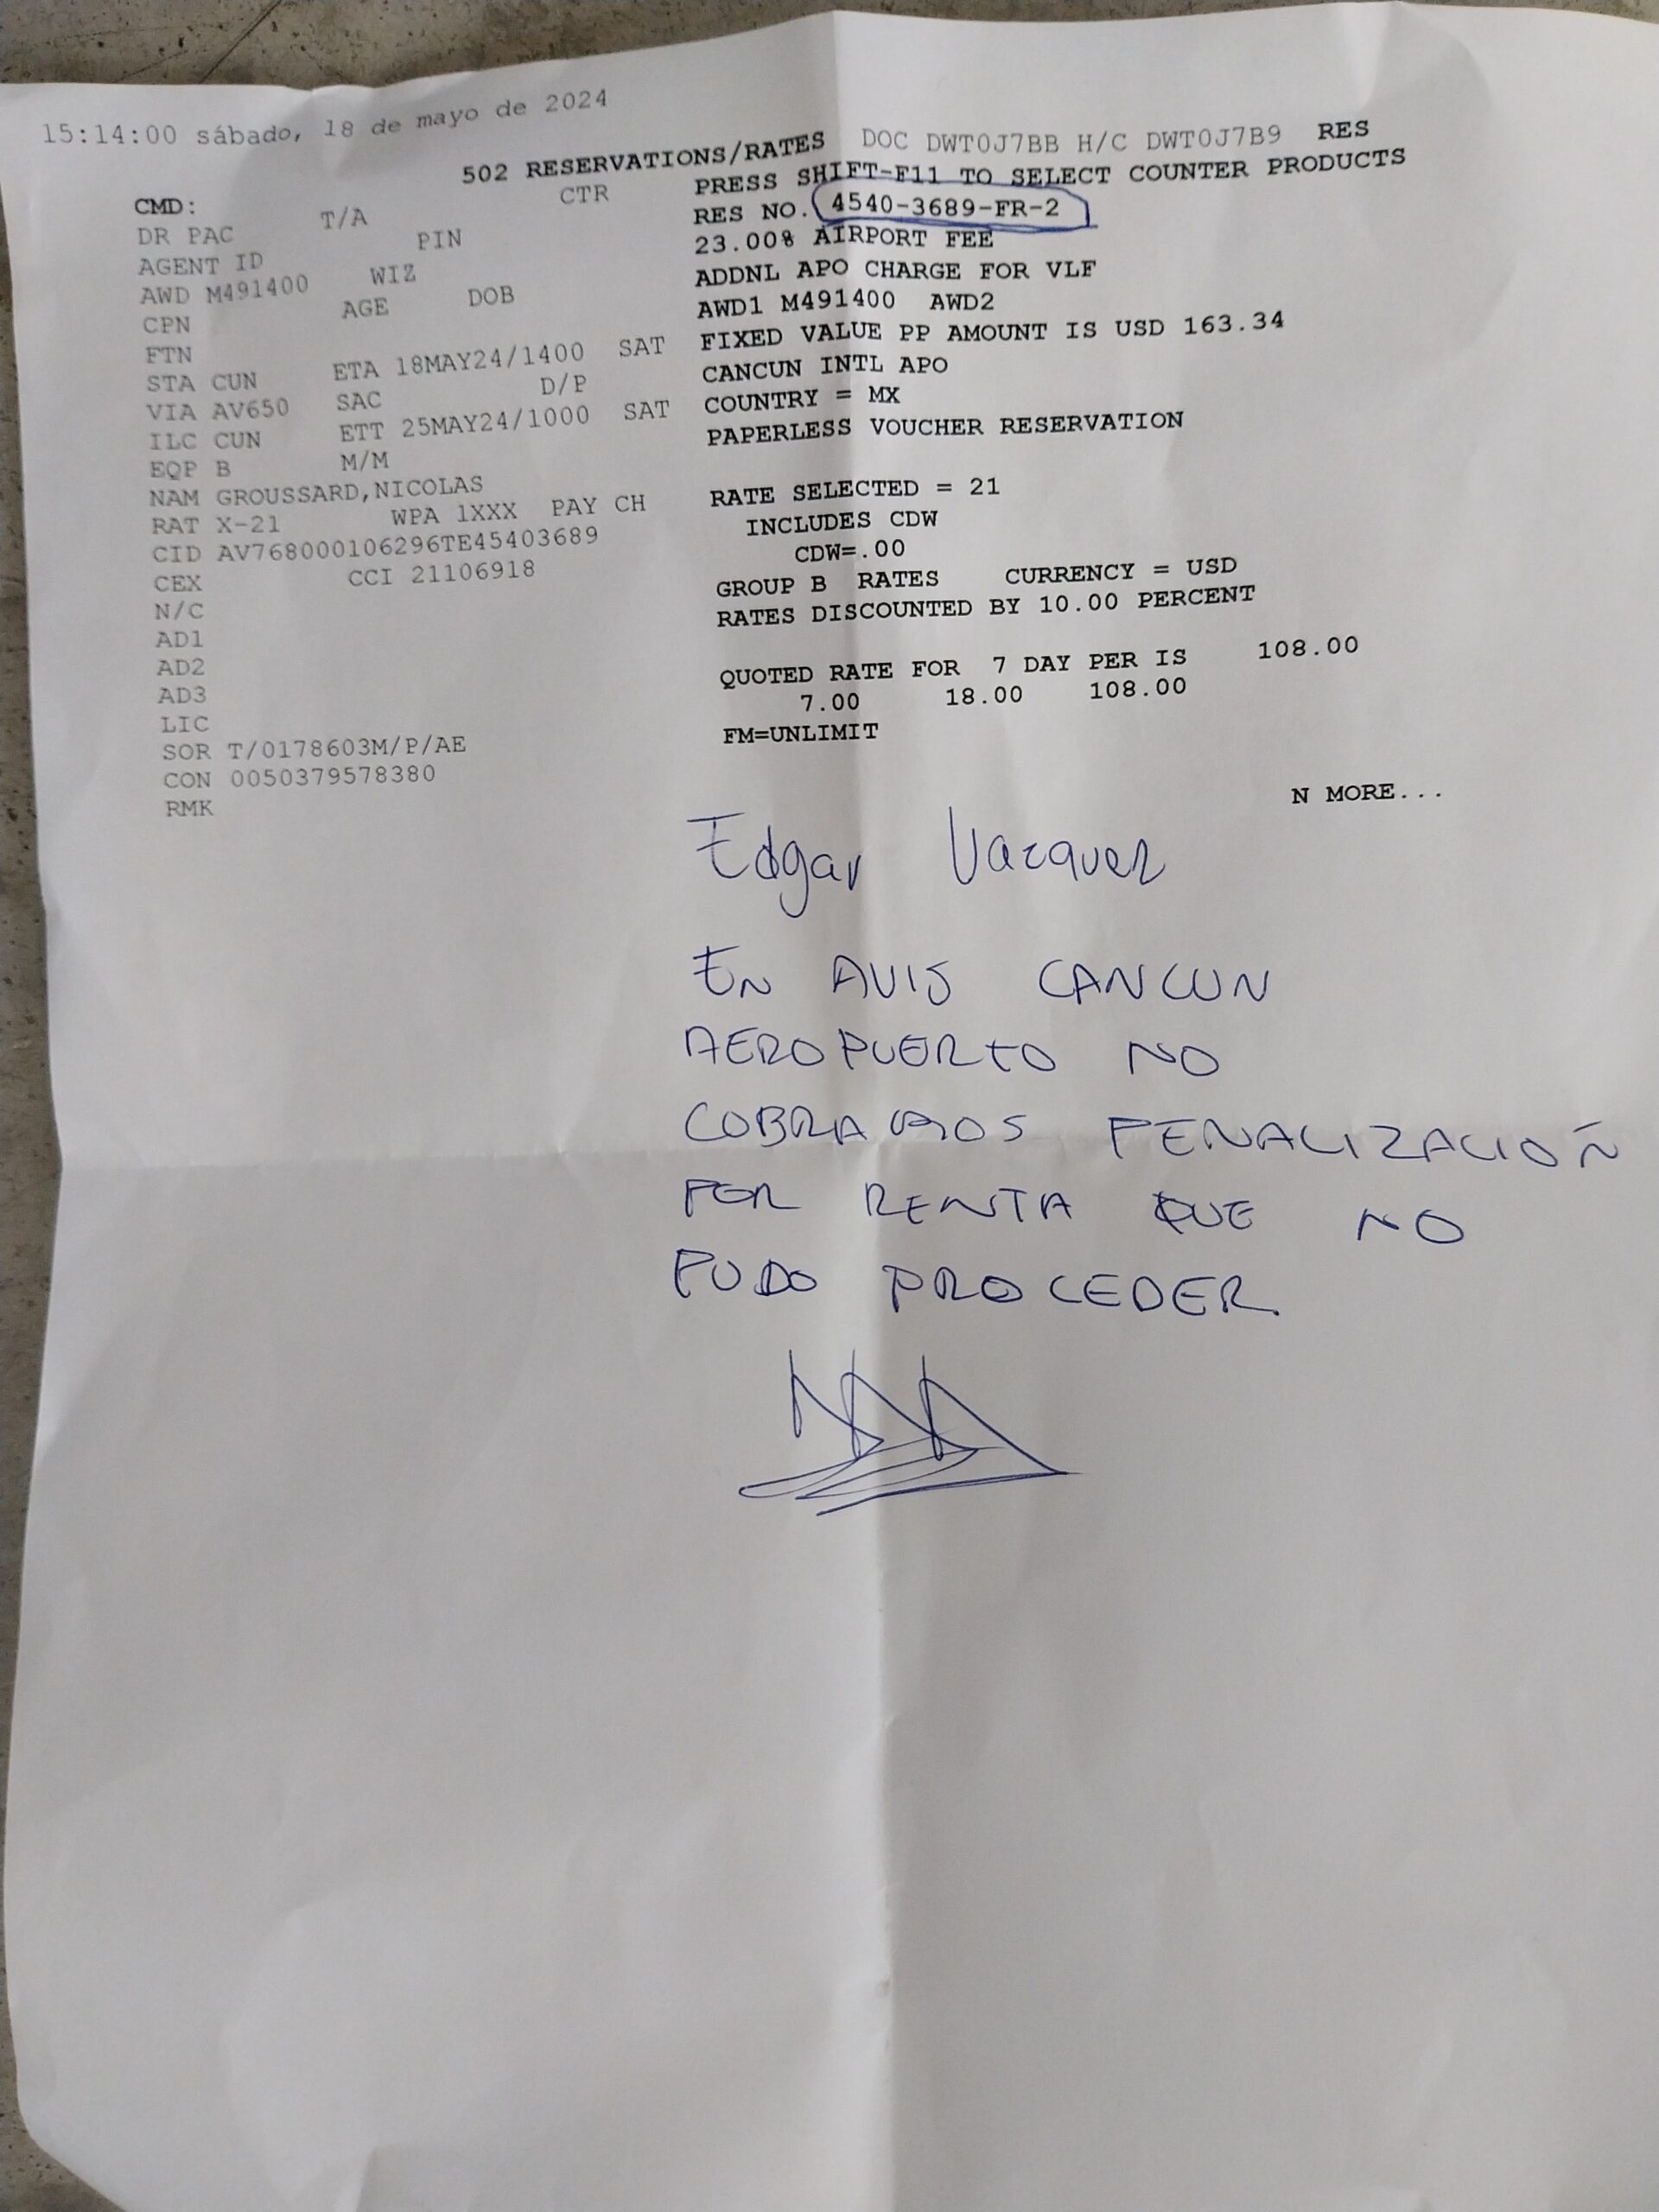 15:14:00 sábado, 18 de mayo de 2024
502 RESERVATIONS/RATES DOC DWT0J7BB H/C DWT0J7B9 RES
CMD: PRESS SHIFT-F11 TO SELECT COUNTER PRODUCTS
DR PAC T/A CTR RES NO. 4540-3689-FR-2
AGENT ID PIN 23.00% AIRPORT FEE
AWD M491400 WIZ ADDNL APO CHARGE FOR VLF
CPN AGE DOB AWD1 M491400 AWD2
FTN FIXED VALUE PP AMOUNT IS USD 163.34
STA CUN ETA 18MAY24/1400 SAT CANCUN INTL APO
VIA AV650 SAC D/P COUNTRY = MX
ILC CUN ETT 25MAY24/1000 SAT PAPERLESS VOUCHER RESERVATION
EQP B M/M
NAM GROUSSARD,NICOLAS RATE SELECTED = 21
RAT X-21 WPA 1XXX PAY CH INCLUDES CDW
CID AV768000106296TE45403689 CDW=.00
CEX CCI 21106918 GROUP B RATES CURRENCY = USD
N/C RATES DISCOUNTED BY 10.00 PERCENT
AD1
AD2 QUOTED RATE FOR 7 DAY PER IS 108.00
AD3 7.00 18.00 108.00
LIC FM=UNLIMIT
SOR T/0178603M/P/AE
CON 0050379578380 N MORE...
RMK
Edgar Vazquez
EN AVIS CANCUN
AEROPUERTO NO
COBRAMOS PENALIZACIÓN
POR RENTA QUE NO
PUDO PROCEDER.